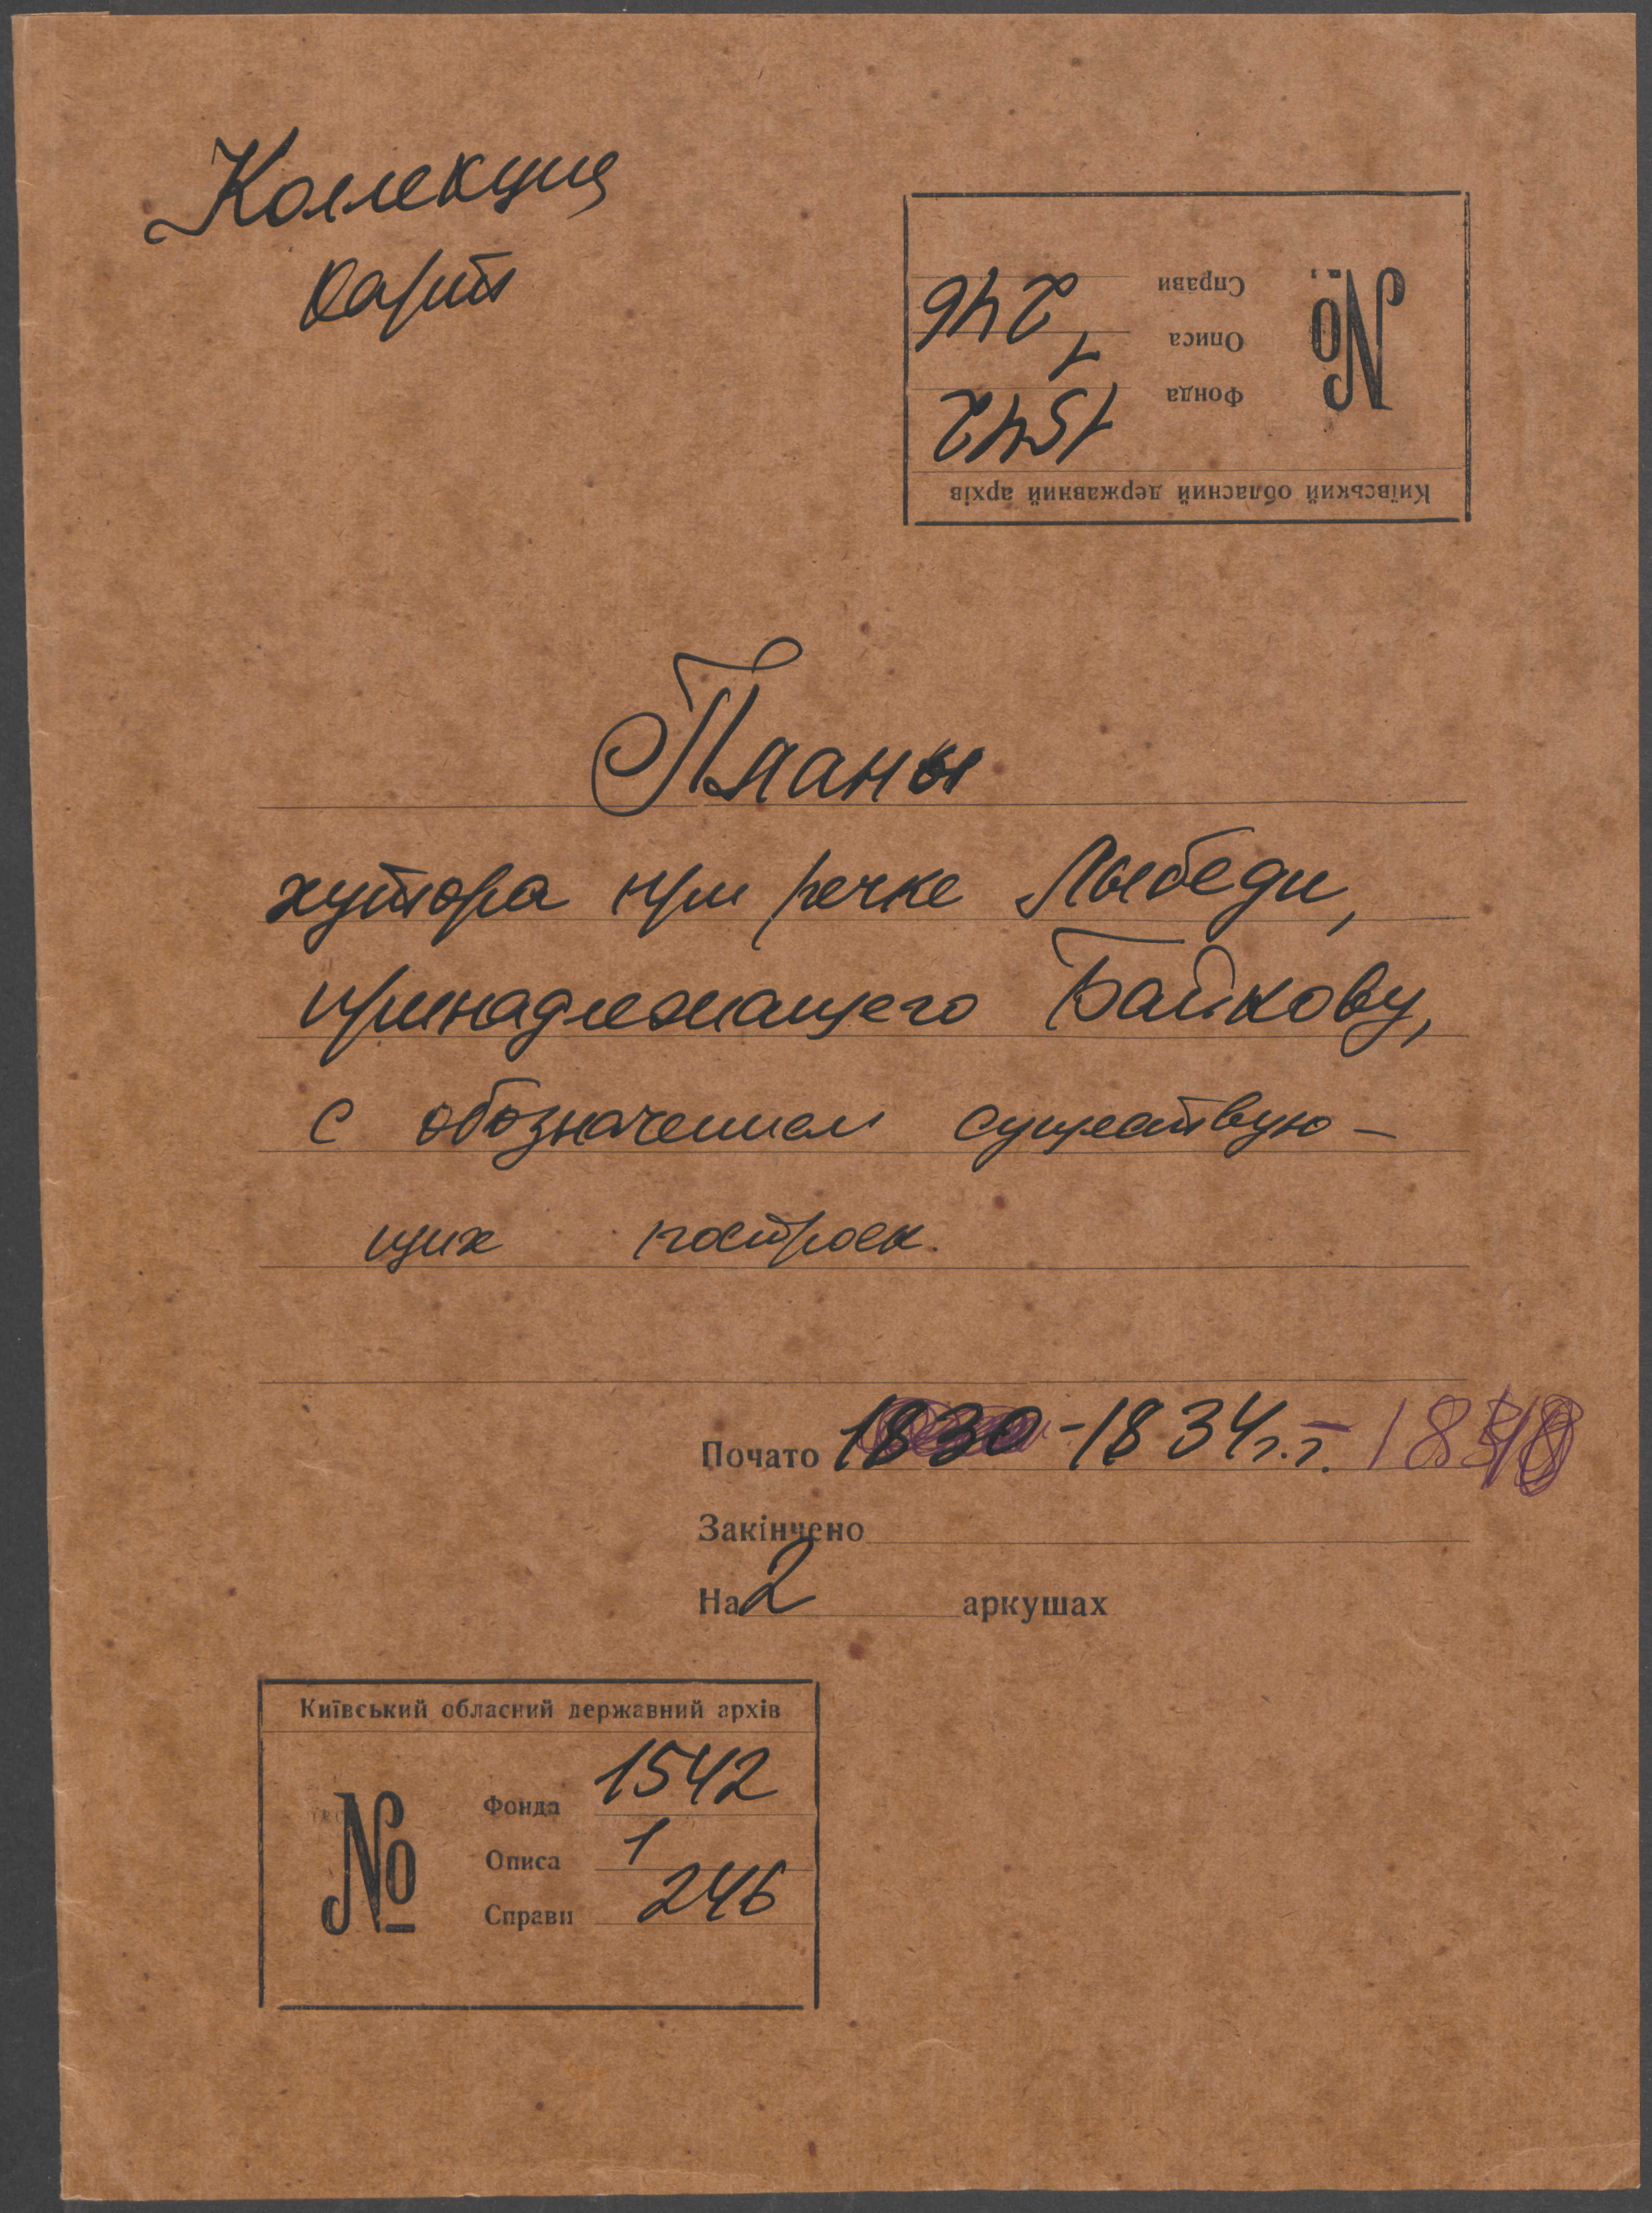 Коллекция
карт
Київський обласний державний архів
№
Фонда 1542
Описа 1
Справи 246
Планы
хутора при речке Лыбеди,
принадлежащего Байкову,
с обозначением существую-
щих построек.
Почато 1830-1834г.г.-
Закінчено
На 2 аркушах
Київський обласний державний архів
№
Фонда 1542
Описа 1
Справи 246